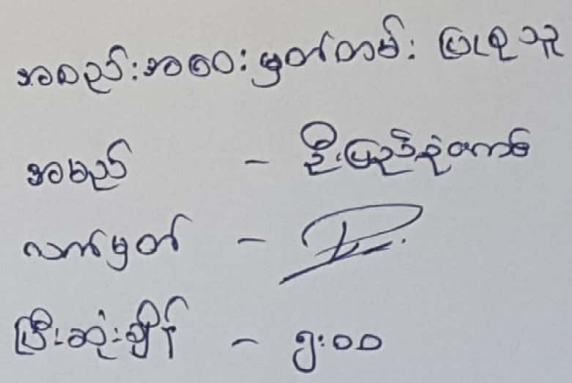 အစည်းအဝေးမှတ်တမ်း ပြုစုသူ
အမည် - ဦးပြည့်စုံအောင်
လက်မှတ် -
ပြီးဆုံးချိန် - ၅:၀၀